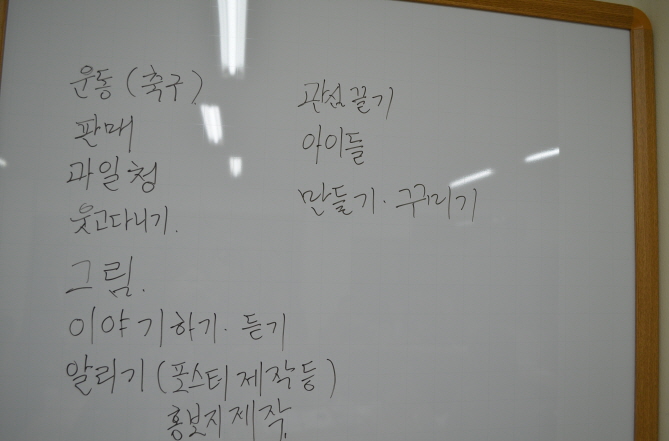 운동 (축구)
판매
과일청
웃고다니기.
그림.
이야기하기·듣기
알리기 (포스터 제작 등)
홍보지 제작
관심 끌기
아이들
만들기·꾸미기